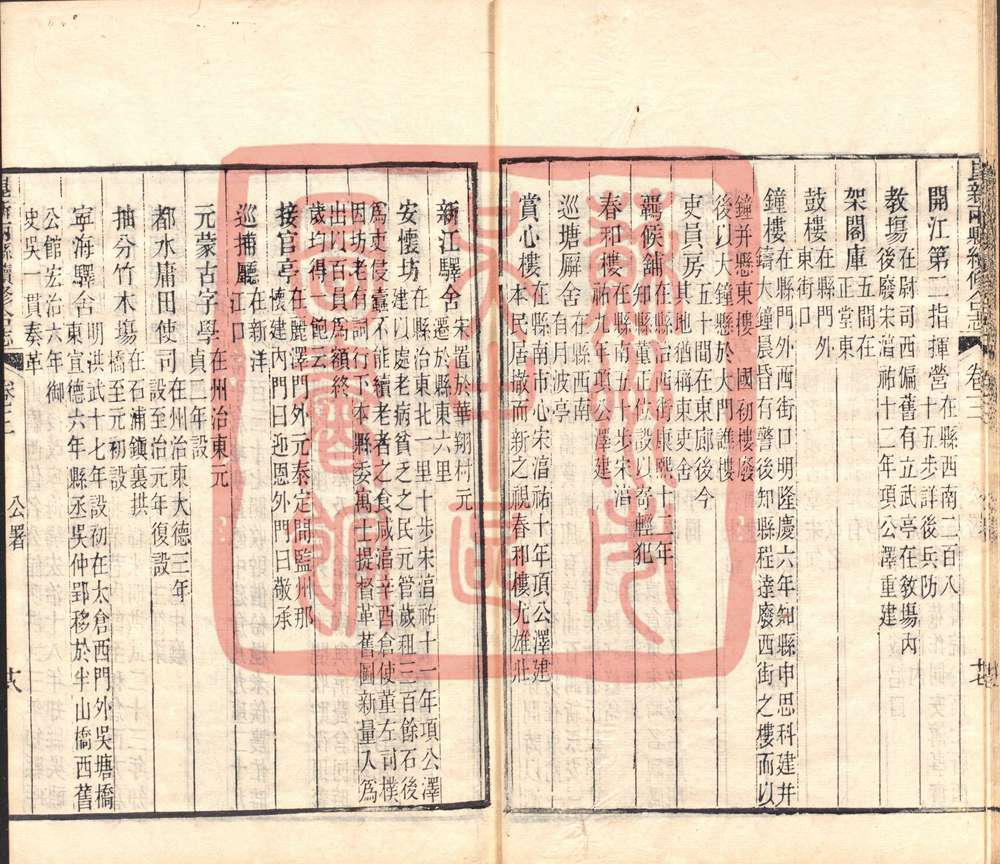 開江第二指揮營在縣西南二百八
十五步詳後兵防
教塲在尉司西偏舊有立武亭在教塲內
後廢宋淯祐十二年項公澤重建
架閣庫五間在
正堂東
鼓樓在縣門外
東街口
鐘樓在縣門外西街口明隆慶六年知縣申思科建并
鑄大鐘晨昏有警後知縣程逵廢西街之樓而以
鐘并懸東樓 國初樓廢
後以大鐘懸於大門譙樓
吏員房五十間在東廊後今
其地猶稱東吏舍
羈候舖在縣治西街康熙十二年
知縣董正位設以寄輕犯
春和樓在縣南五十步宋淯
祐九年項公澤建
巡塘廨舍在縣西南
有月波亭
賞心樓在縣南市心宋淯祐十年項公澤建
本民居撤而新之視春和樓尤雄壯
新江驛舍宋置於華翔村元
遷於縣東六里
安懷坊在縣治東北一里十步宋淯祐十一年項公澤
建以處老病貧乏之民元管歲租三百餘石後
爲吏侵蠧不能續老者之食咸淯辛酉倉使董左司樸
因坊老有詞行下本縣委寓士提督革舊圖新量入爲
出以百員爲額終
歲均得一飽云
接官亭在麗澤門外元泰定間監州那
懷建內門曰迎恩外門曰敬承
巡捕廳在新洋
江口
元蒙古字學在州治東元
貞二年設
都水庸田使司在州治東大德三年
設至治元年復設
抽分竹木塲在石浦鎭裏拱
橋至元初設
寧海驛舍明洪武十七年設初在太倉西門外吳塘橋
東宣德六年縣丞吳仲郢移於半山橋西舊
公館宏治六年御
史吳一貫奏革
卷三
公署